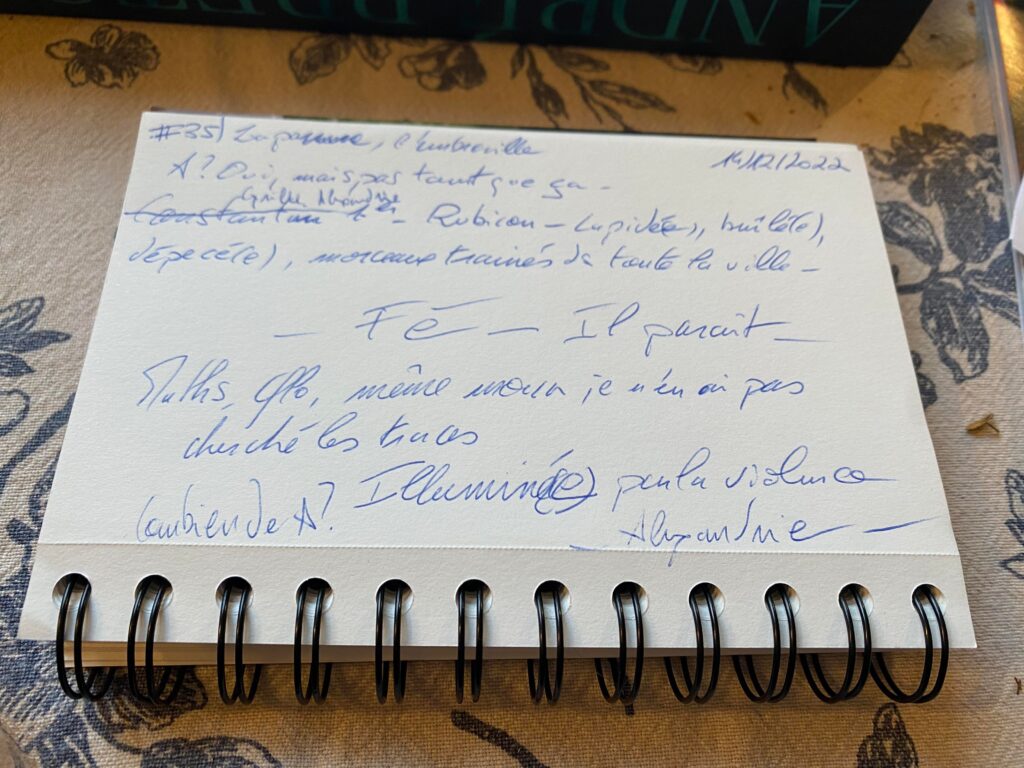 ANDRÉ
#35/ La panne, l'embrouille
14/12/2022
A? Oui, mais pas tant que ça -
Cyrille Alexandrie
Constantin - Rubicon - Lapidé(e), brûlé(e),
dépecé(e), morceaux traînés ds toute la ville -
- Fé - Il paraît -
Maths, même je n'en ai pas
cherché les traces
Combien de A? Illuminé(e) par la violence
- Alexandrie -